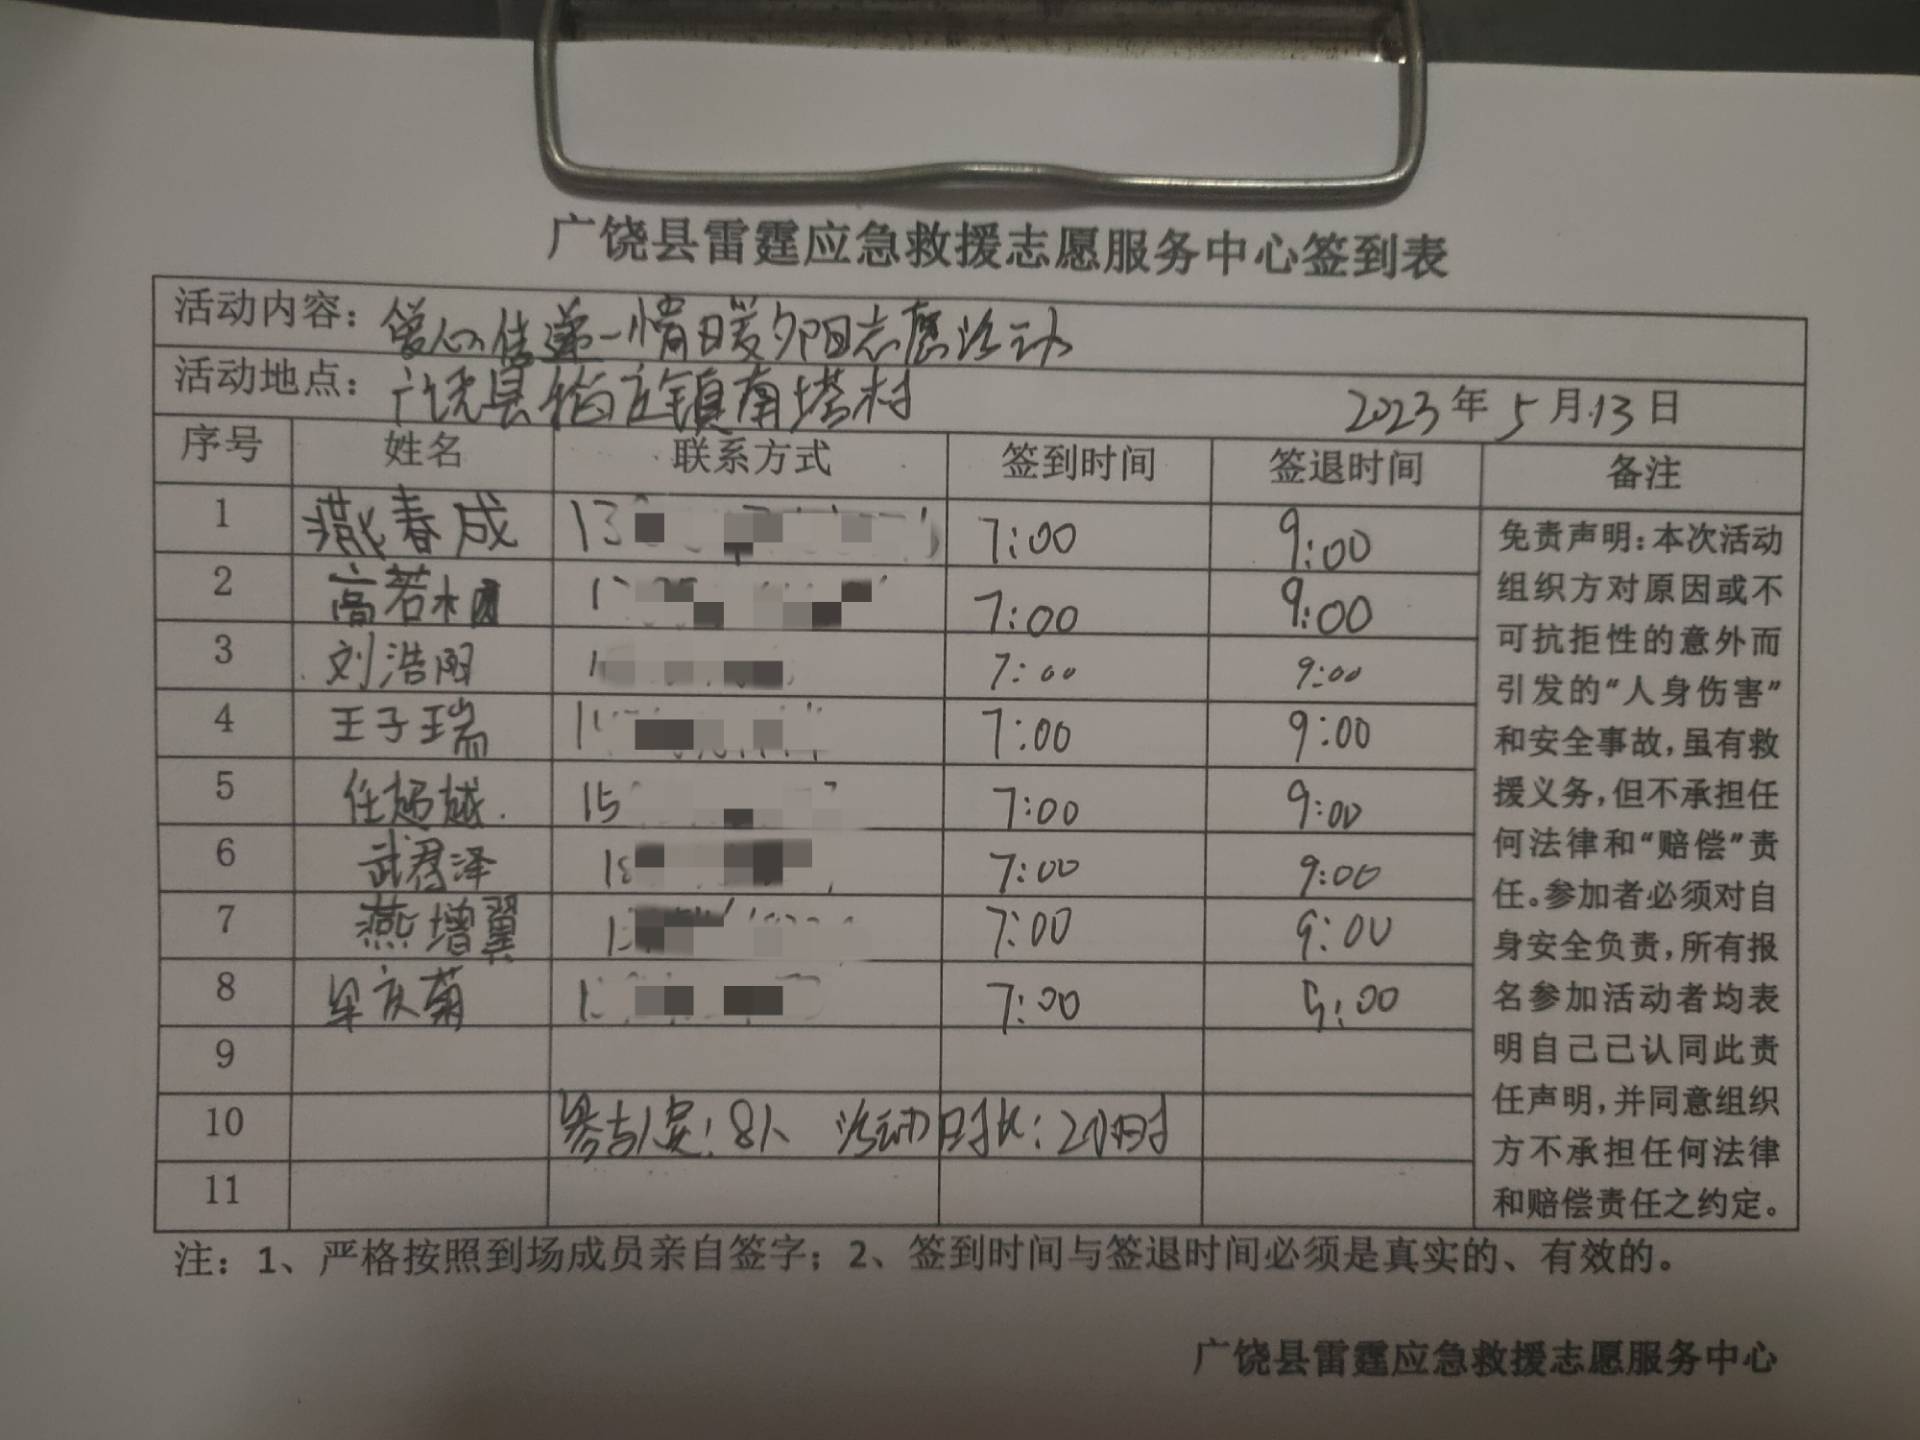 广饶县雷霆应急救援志愿服务中心签到表
活动内容：爱心传递一情暖夕阳志愿活动
活动地点：广饶县稻庄镇南塔村 2023年5月13日
序号 姓名 联系方式 签到时间 签退时间 备注
1 燕春成 13 7:00 9:00
2 高若 7:00 9:00
3 刘浩阳 7:00 9:00
4 王子瑞 7:00 9:00
5 任超越 15 7:00 9:00
6 武君泽 7:00 9:00
7 燕增翼 7:00 9:00
8 庆菊 7:00 9:00
9
10 参与人员：8人 活动时长：2小时
11
免责声明：本次活动
组织方对原因或不
可抗拒性的意外而
引发的“人身伤害”
和安全事故，虽有救
援义务，但不承担任
何法律和“赔偿”责
任。参加者必须对自
身安全负责，所有报
名参加活动者均表
明自己已认同此责
任声明，并同意组织
方不承担任何法律
和赔偿责任之约定。
注：1、严格按照到场成员亲自签字；2、签到时间与签退时间必须是真实的、有效的。
广饶县雷霆应急救援志愿服务中心